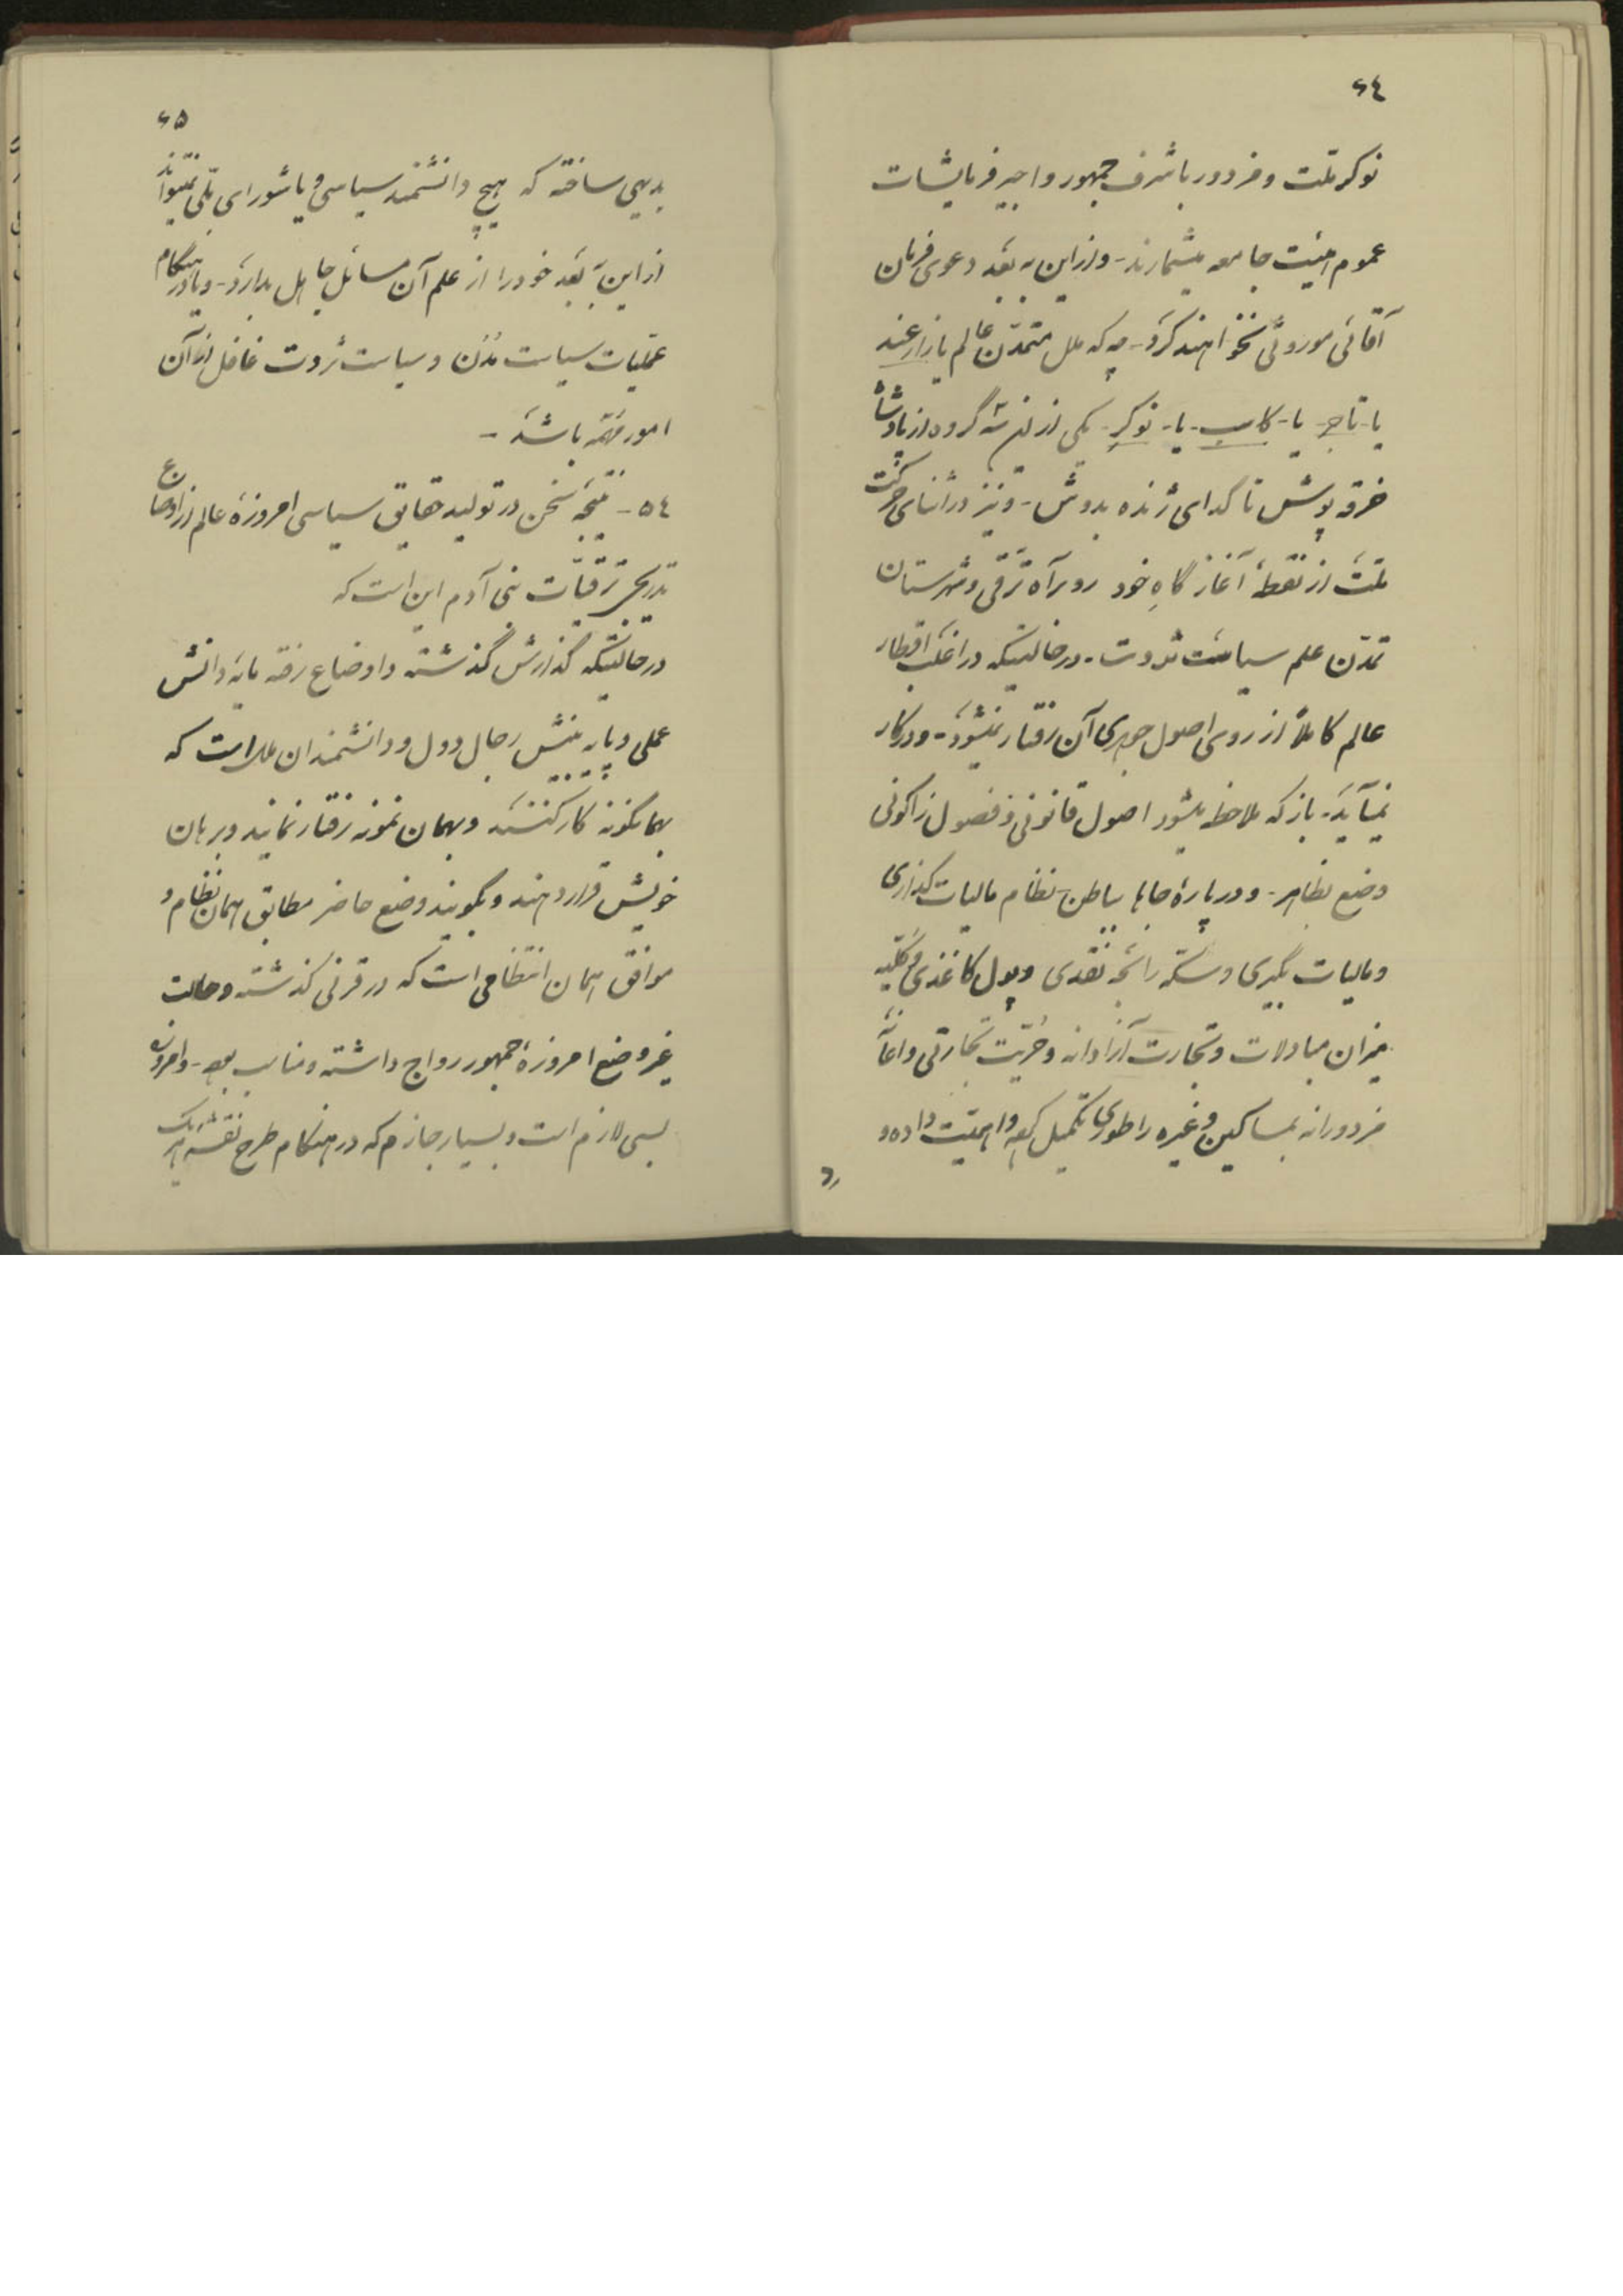 ٦٤
نوکر ملت و مزدور باشرف جمهور و اجیر فرمایشات
عموم هیئت جامعه میشمارند - و ازین به بعد دعوی فرمان
آقائی موروثی نخواهند کرد - چه که ملل متمدن عالم یا زارعند
یا - تاجر - یا - کاسب - یا - نوکر - یکی ازین سه گروه از پادشاه
خرقه پوش تا گدای ژنده بدوش - و نیز در اثنای حرکت
ملت از نقطۀ آغاز گاهِ خود رو براه ترقی و شهرستان
تمدّن علم سیاست ثروت - در حالتیکه در اغلب اقطار
عالم کاملاً از روی اصول جوهری آن رفتار نمیشود - و در کار
نمیآید - باز که ملاحظه میشود اصول قانونی و فصول زاکونی
وضع بظاهر - و در پارۀ جاها بباطن نظام مالیات گذاری
و مالیات بگیری و سکّه رائجه نقدی و پول کاغذی و کلّیه
میزان مبادلات و تجارت آزادانه و حُریّت تجارتی و اعانۀ
مزدورانه بمساکین و غیره را طوری تکمیل کرده و اهمیّت داده و
٦۵
بدیهی ساخته که هیچ دانشمند سیاسی و یا شورای ملّی نمیتواند
از این به بعد خود را از علم آن مسائل جاهل بدارد - و یا در هنگام
عملیّات سیاست مُدُن و سیاست ثروت غافل از آن
امور مهمّه باشد -
٥٤ - نتیجه سخن در تولید حقایق سیاسی امروزۀ عالم از اوضاع
تدریجی ترقیّات بنی آدم این است که
در حالتیکه گذارش گذشته و اوضاع رفته مایۀ دانش
عملی و پایه بینش رجال دول و دانشمندان ملل است که
بهمانگونه کار کنند و بهمان نمونه رفتار نمایند و برهان
خویش قرار دهند و بگویند وضع حاضر مطابق همان نظام و
موافق همان انتظامی است که در قرنی گذشته و حالت
غیر وضع امروزۀ جمهور رواج داشته و مناسب بوده - و امروزه
بسی لازم است و بسیار جازم که در هنگام طرح نقشۀ هر یک